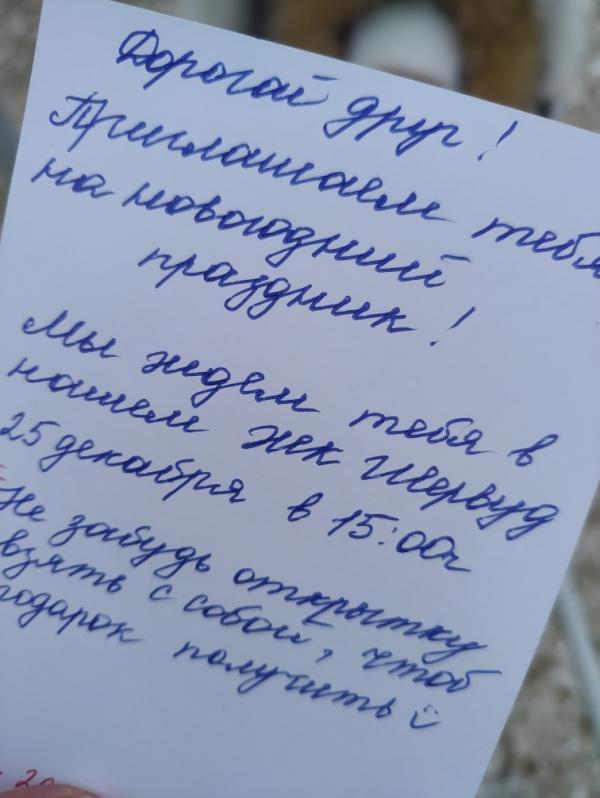 Дорогай друг!
Приглашаем тебя
на новогодний
праздник!
Мы ждем тебя в
нашем жк Шервуд
25 декабря в 15:00ч
Не забудь открытку
взять с собой, чтоб
подарок получить